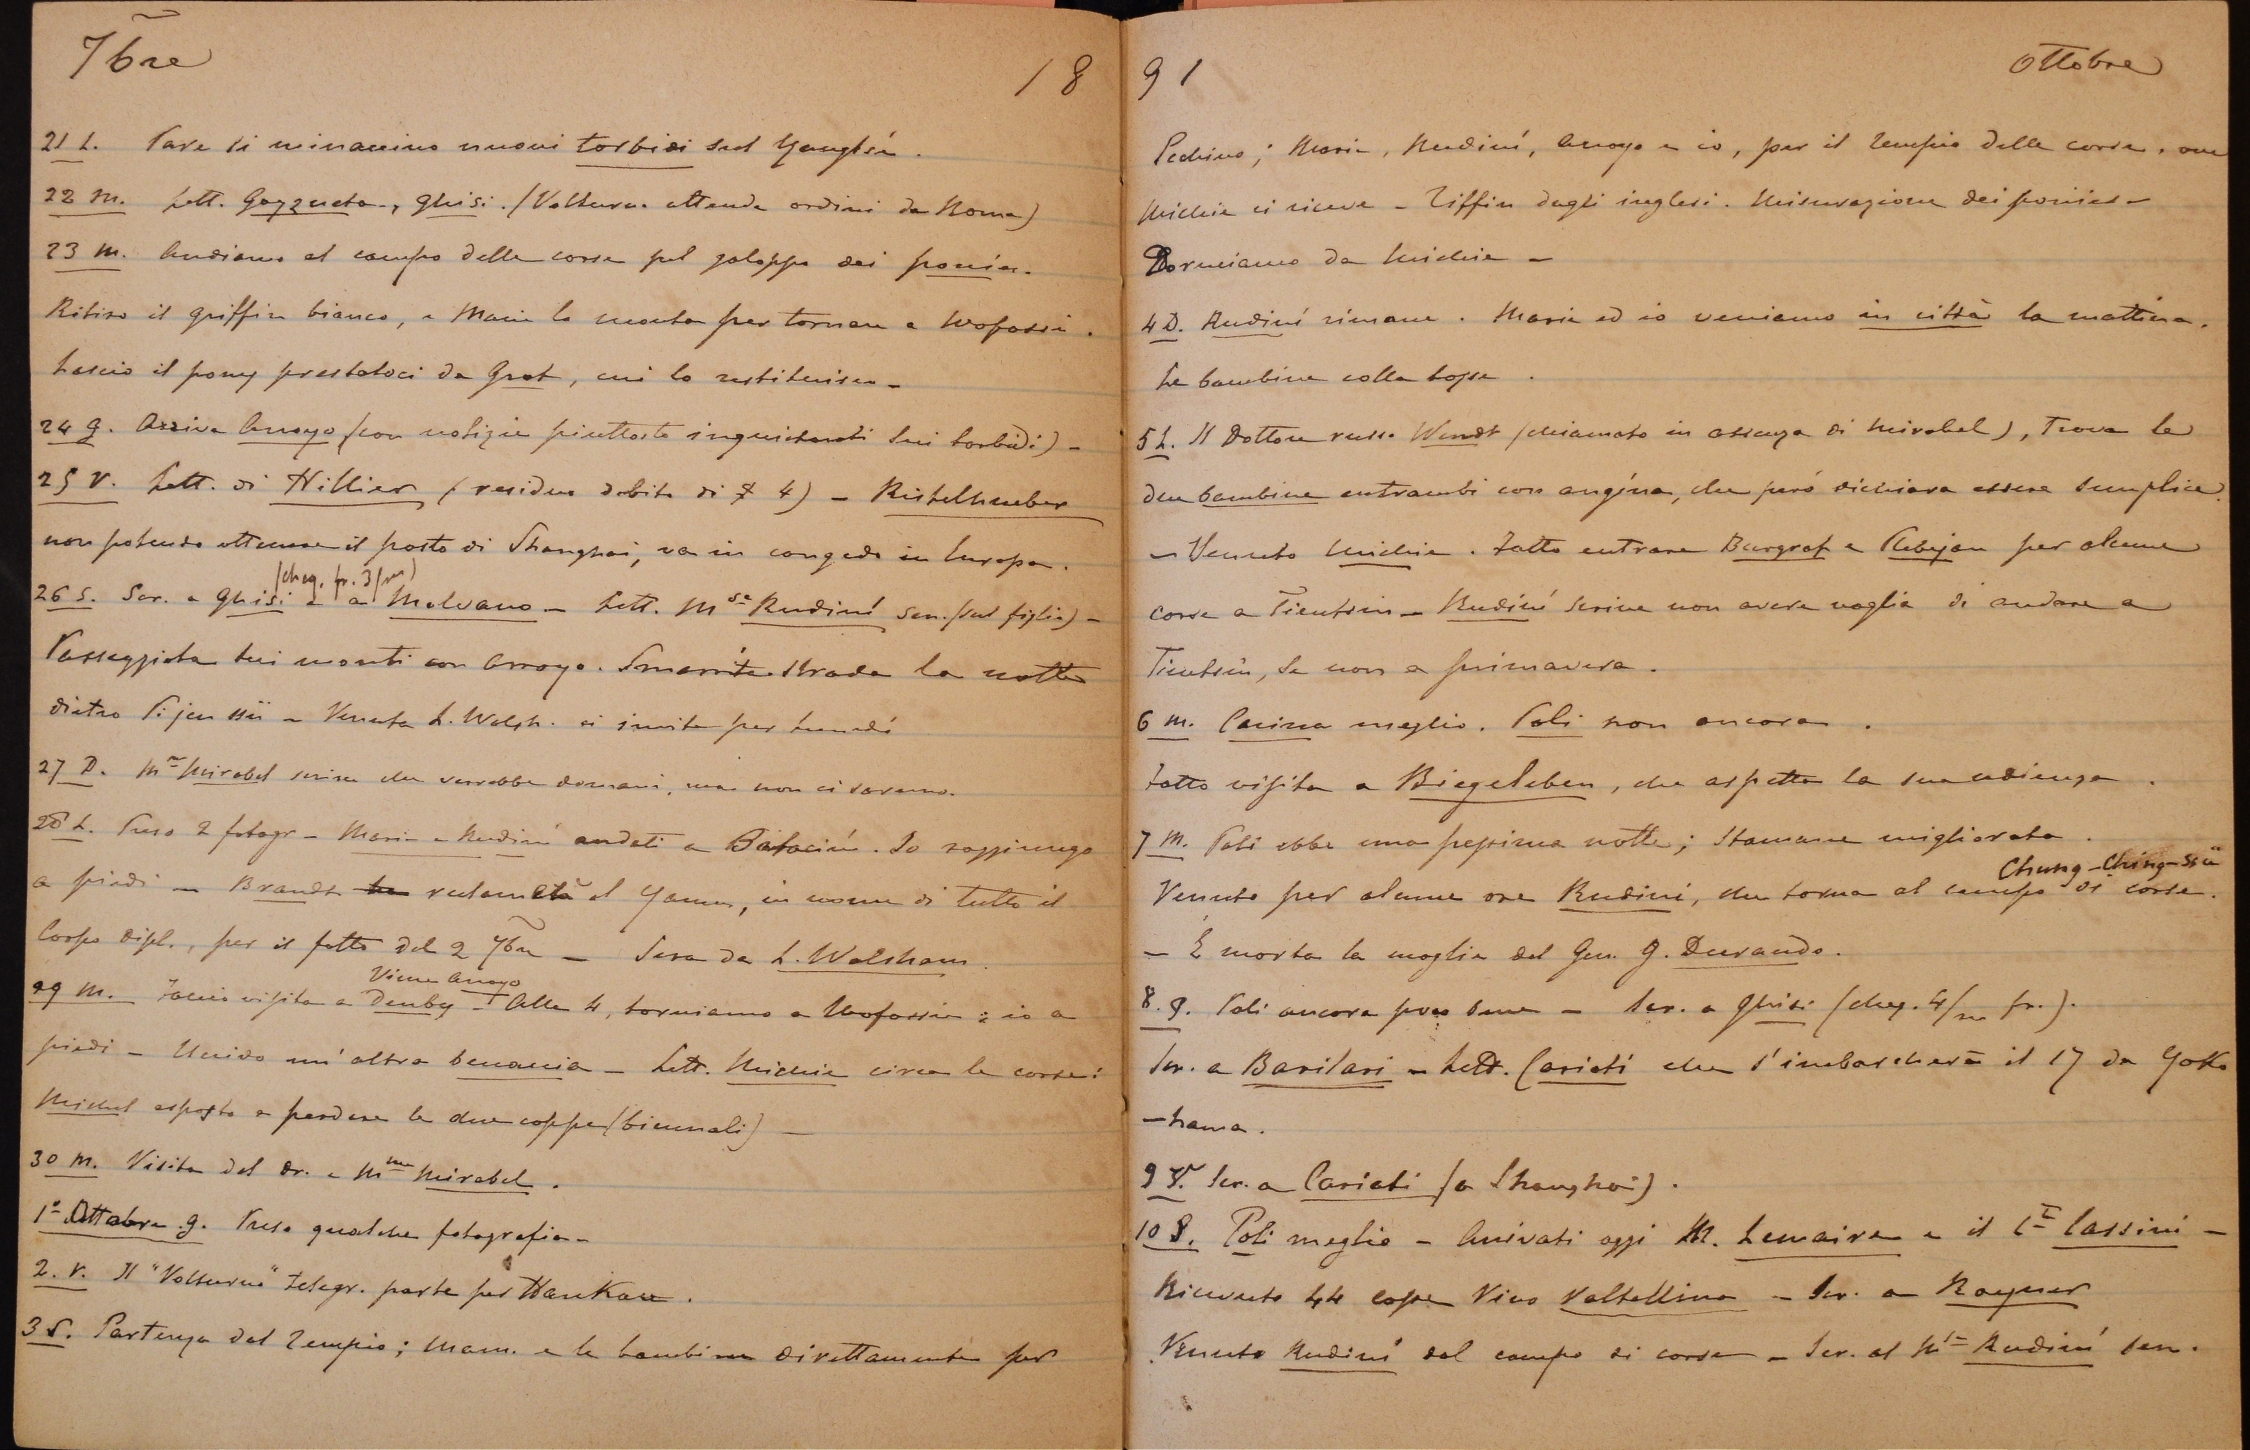 7bre
18
21 L. Pare si minaccino nuovi torbidi sul Yangtsé.
22 M. Lett. Gozzueta, Ghisi. (Volturno attende ordini da Roma)
23 M. Andiamo al campo delle corse pel galoppo dei ponies.
Ritiro il griffin bianco, e Maria lo monta per tornare a Wofossü.
Lascio il pony prestatoci da Grot, cui lo restituisco –
24 G. Arriva Arroyo (con notizie piuttosto inquietanti sui torbidi) –
25 V. Lett. di Hillier (residuo debito di $ 4) – Ristelhueber
non potendo ottenere il posto di Shanghai, va in congedo in Europa.
(cheq. fr. 3/m)
26 S. Scr. a Ghisi e a Malvano – Lett. Mse Rudiní sen. (sul figlio) –
Passeggiata sui monti con Arroyo. Smarrita strada la notte
dietro Pijenssü – Venuta L. Walsh. ci invita per lunedí
27 D. Mr Mirabel scrive che verrebbe domani, ma non ci saremo.
28 L. Preso 2 fotogr – Maria e Rudiní andati a Bataciú. Io raggiungo
a piedi – Brandt ha reclamerà al Yamen, in nome di tutto il
Corpo dipl., per il fatto del 2 7bre – Sera da L. Walsham.
Viene Arroyo
29 M. Faccio visita a Denby – Alle 4, torniamo a Wofossü; io a
piedi – Uccido un' altra beccaccia – Lett. Michie circa le corse:
Michel esposto a perdere le due coppe (biennali) –
30 M. Visita del dr. e Mme Mirabel.
1º Ottobre. G. Preso qualche fotografia –
2. V. Il "Volturno" telegr. parte per Hankau.
3 S. Partenza dal Tempio; Mam. e le bambine direttamente per
91
Ottobre
Pechino; Maria, Rudiní, Arroyo e io, per il Tempio delle corse, ove
Michie ci riceve – Tiffin dagli inglesi. Misurazione dei ponies –
Dormiamo da Michie –
4 D. Rudiní rimane. Maria ed io veniamo in città la mattina.
Le bambine colla tosse.
5 L. Il Dottore russo Wendt (chiamato in assenza di Mirabel), trova le
due bambine entrambi con angina, che peró dichiara essere semplice.
– Venuto Michie. Fatto entrare Burgraf e Rebejan per alcune
corse a Tientsin – Rudiní scrive non avere voglia di andare a
Tientsin, se non a primavera.
6 M. Carina meglio. Poli non ancora.
Fatto visita a Biegeleben, che aspetta la sua udienza.
7 M. Poli ebbe una pessima notte; stamane migliorata.
Chung-Ching-ssü
Venuto per alcune ore Rudiní, che torna al campo di corse.
– È morta la moglie del Gen. G. Durando.
8. G. Poli ancora poco bene – Scr. a Ghisi (cheq. 4/m fr.).
Scr. a Barilari – Lett. Cariati che s'imbarcherà il 17 da Yoko
–hama.
9 V. Scr. a Cariati (a Shanghai).
10 S. Poli meglio – Arrivati oggi M. Lemaire e il Cte Cassini –
Ricevuto 44 casse Vino Valtellina – Scr. a Rayner
Venuto Rudiní dal campo di corse – Scr. al Mse Rudiní sen.